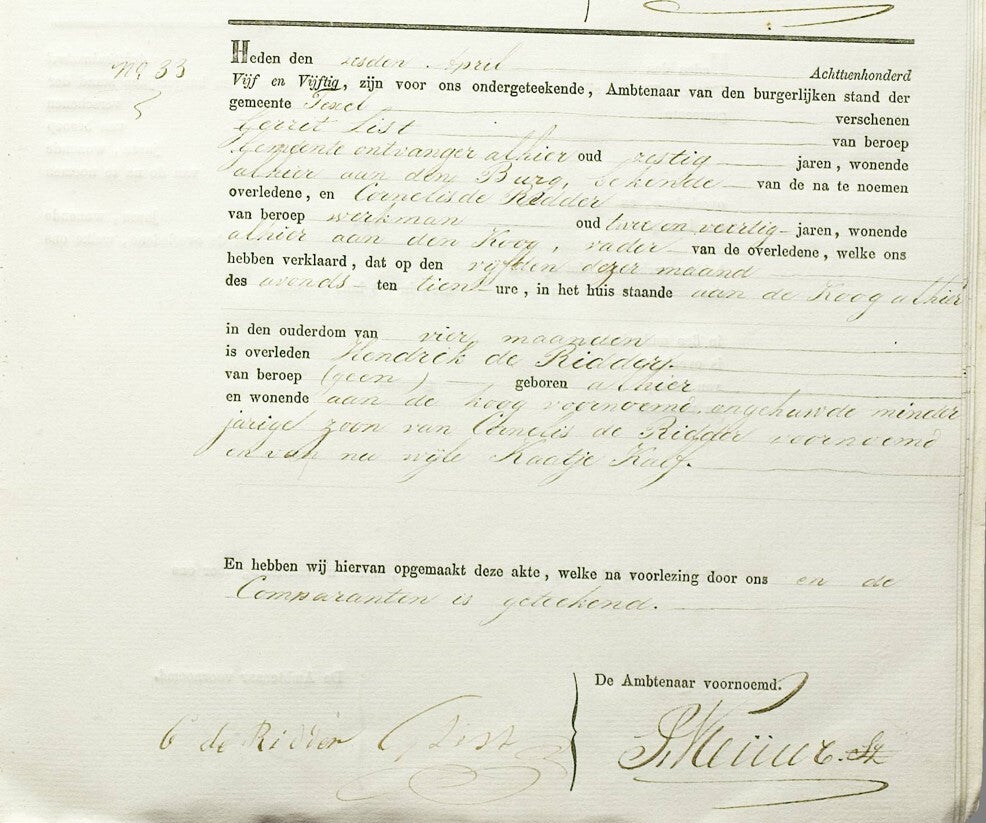 No 33
Heden den zesden April Achttienhonderd
Vijf en Vijftig, zijn voor ons ondergeteekende, Ambtenaar van den burgerlijken stand der
gemeente Texel verschenen
Gerret List van beroep
gemeente ontvanger alhier oud zestig jaren, wonende
alhier aan den Burg, bekende van de na te noemen
overledene, en Cornelis de Ridder
van beroep werkman oud twee en veertig jaren, wonende
alhier aan den Koog, vader van de overledene, welke ons
hebben verklaard, dat op den vijfden dezer maand
des avonds ten tien ure, in het huis staande aan de Koog alhier
in den ouderdom van vier maanden
is overleden Hendrik de Ridder
van beroep (geen) geboren alhier
en wonende aan de Koog voornoemd, ongehuwde minder
jarige zoon van Cornelis de Ridder voornoemd
en van nu wijle Kaatje Kalf.
En hebben wij hiervan opgemaakt deze akte, welke na voorlezing door ons en de
Comparanten is geteekend.
De Ambtenaar voornoemd.
C de Ridder G List